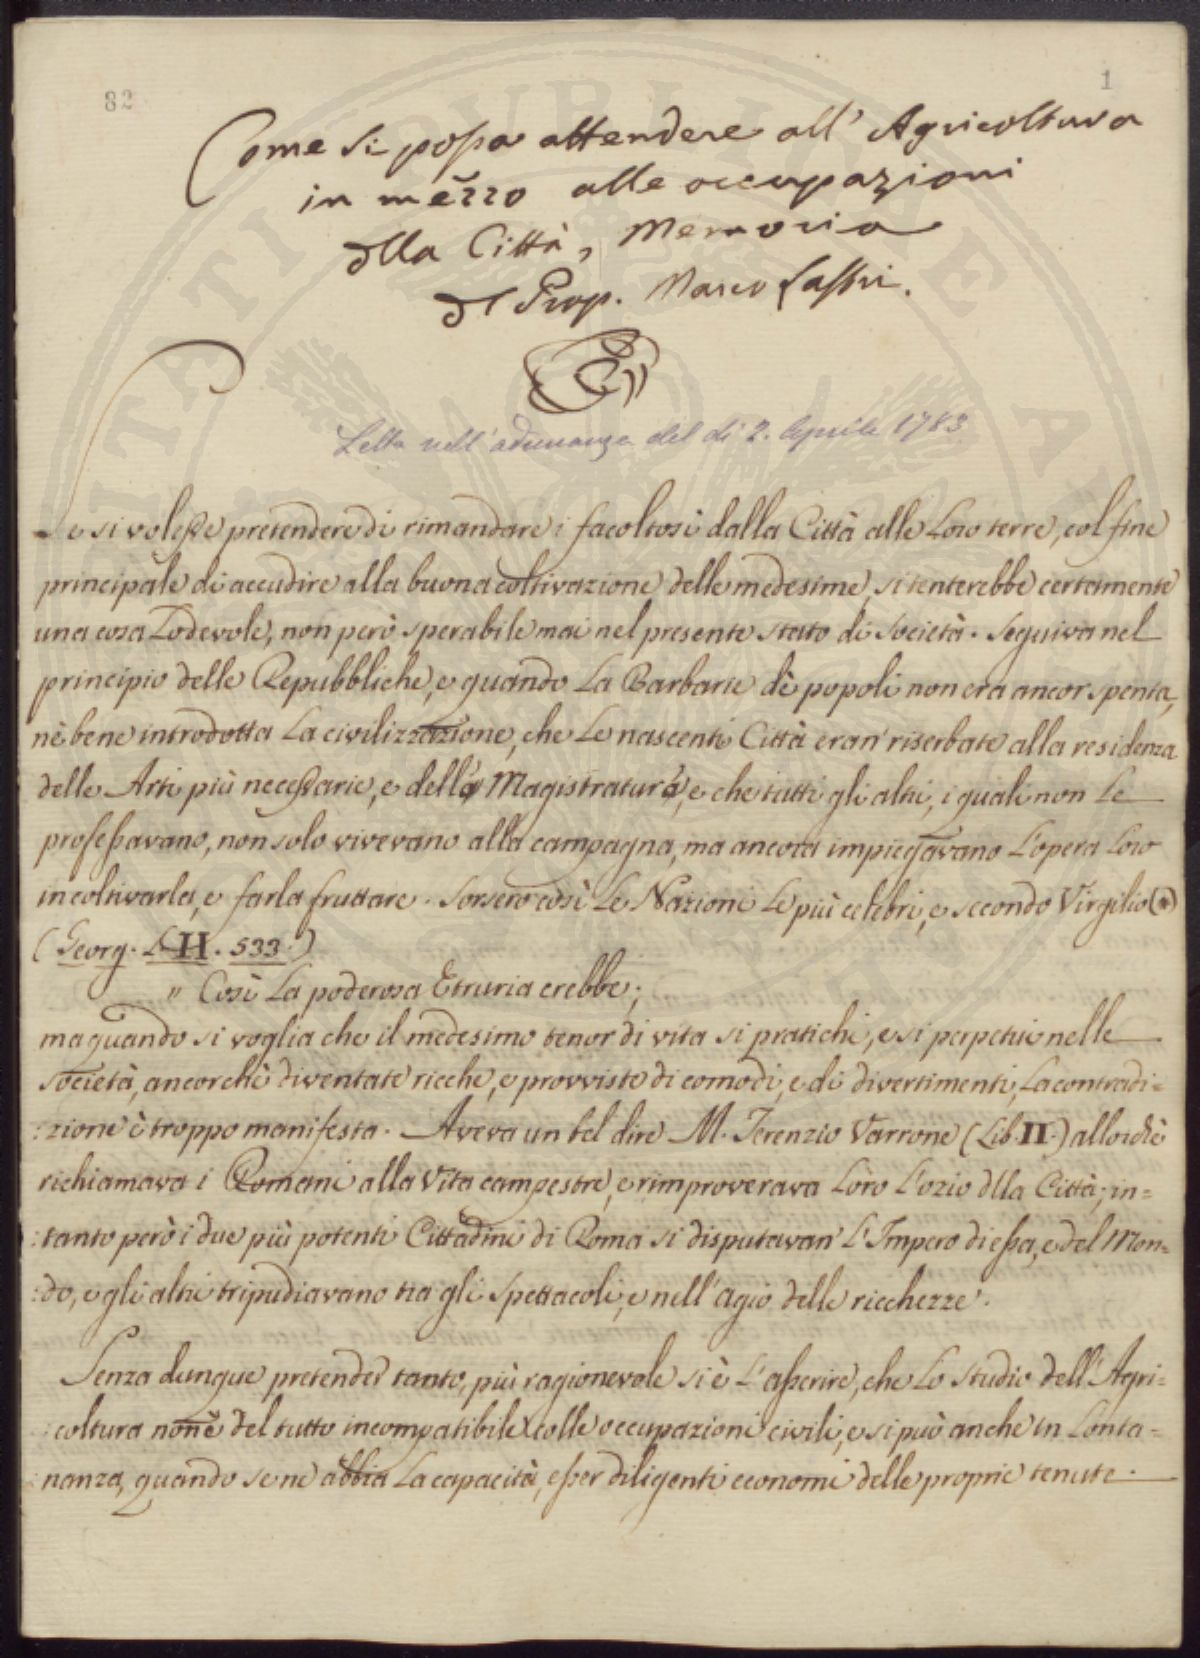 82
1
Come si possa attendere all' Agricoltura
in mezzo alle occupazioni
dlla Città, Memoria
dl Prop. Marco Lastri.
Letta nell'adunanza del dì 2. Aprile 1783
Se si volesse pretendere di rimandare i facoltosi dalla Città alle Loro terre, col fine
principale di accudire alla buona coltivazione delle medesime, si tenterebbe certamente
una cosa Lodevole, non però sperabile mai nel presente stato di Società. Seguiva nel
principio delle Repubbliche, e quando La Barbarie dè popoli non era ancor spenta,
nè bene introdotta La civilizzazione, che Le nascenti Città eran' riserbate alla residenza
delle Arti più necessarie, e delle Magistrature, e che tutti gli altri, i quali non Le
professavano, non solo vivevano alla campagna, ma ancora impiegavano L'opera Loro
in coltivarla, e farla fruttare. Sorsero così Le Nazioni Le più celebri, e secondo Virgilio (*)
(Georg. L. II. 533.)
" Così La poderosa Etruria crebbe;
ma quando si voglia che il medesimo tenor di vita si pratichi, e si perpetui nelle
società, ancorchè diventate ricche, e provviste di comodi, e di divertimenti, La contradi=
:zione è troppo manifesta. Aveva un bel dire M. Terenzio Varrone (Lib. II.) allorchè
richiamava i Romani alla Vita campestre, e rimproverava Loro L'ozio dlla Città; in=
:tanto però i due più potenti Cittadini di Roma si disputavan' L'Impero di essa, e del Mon=
:do, e gli altri tripudiavano tra gli Spettacoli, e nell'agio delle ricchezze.
Senza dunque pretender tanto, più ragionevole si è L'asserire, che Lo Studio dell'Agri=
:coltura non è del tutto incompatibile colle occupazioni civili, e si può anche in Lonta=
:nanza, quando se ne abbia La capacità, esser diligenti economi delle proprie tenute.